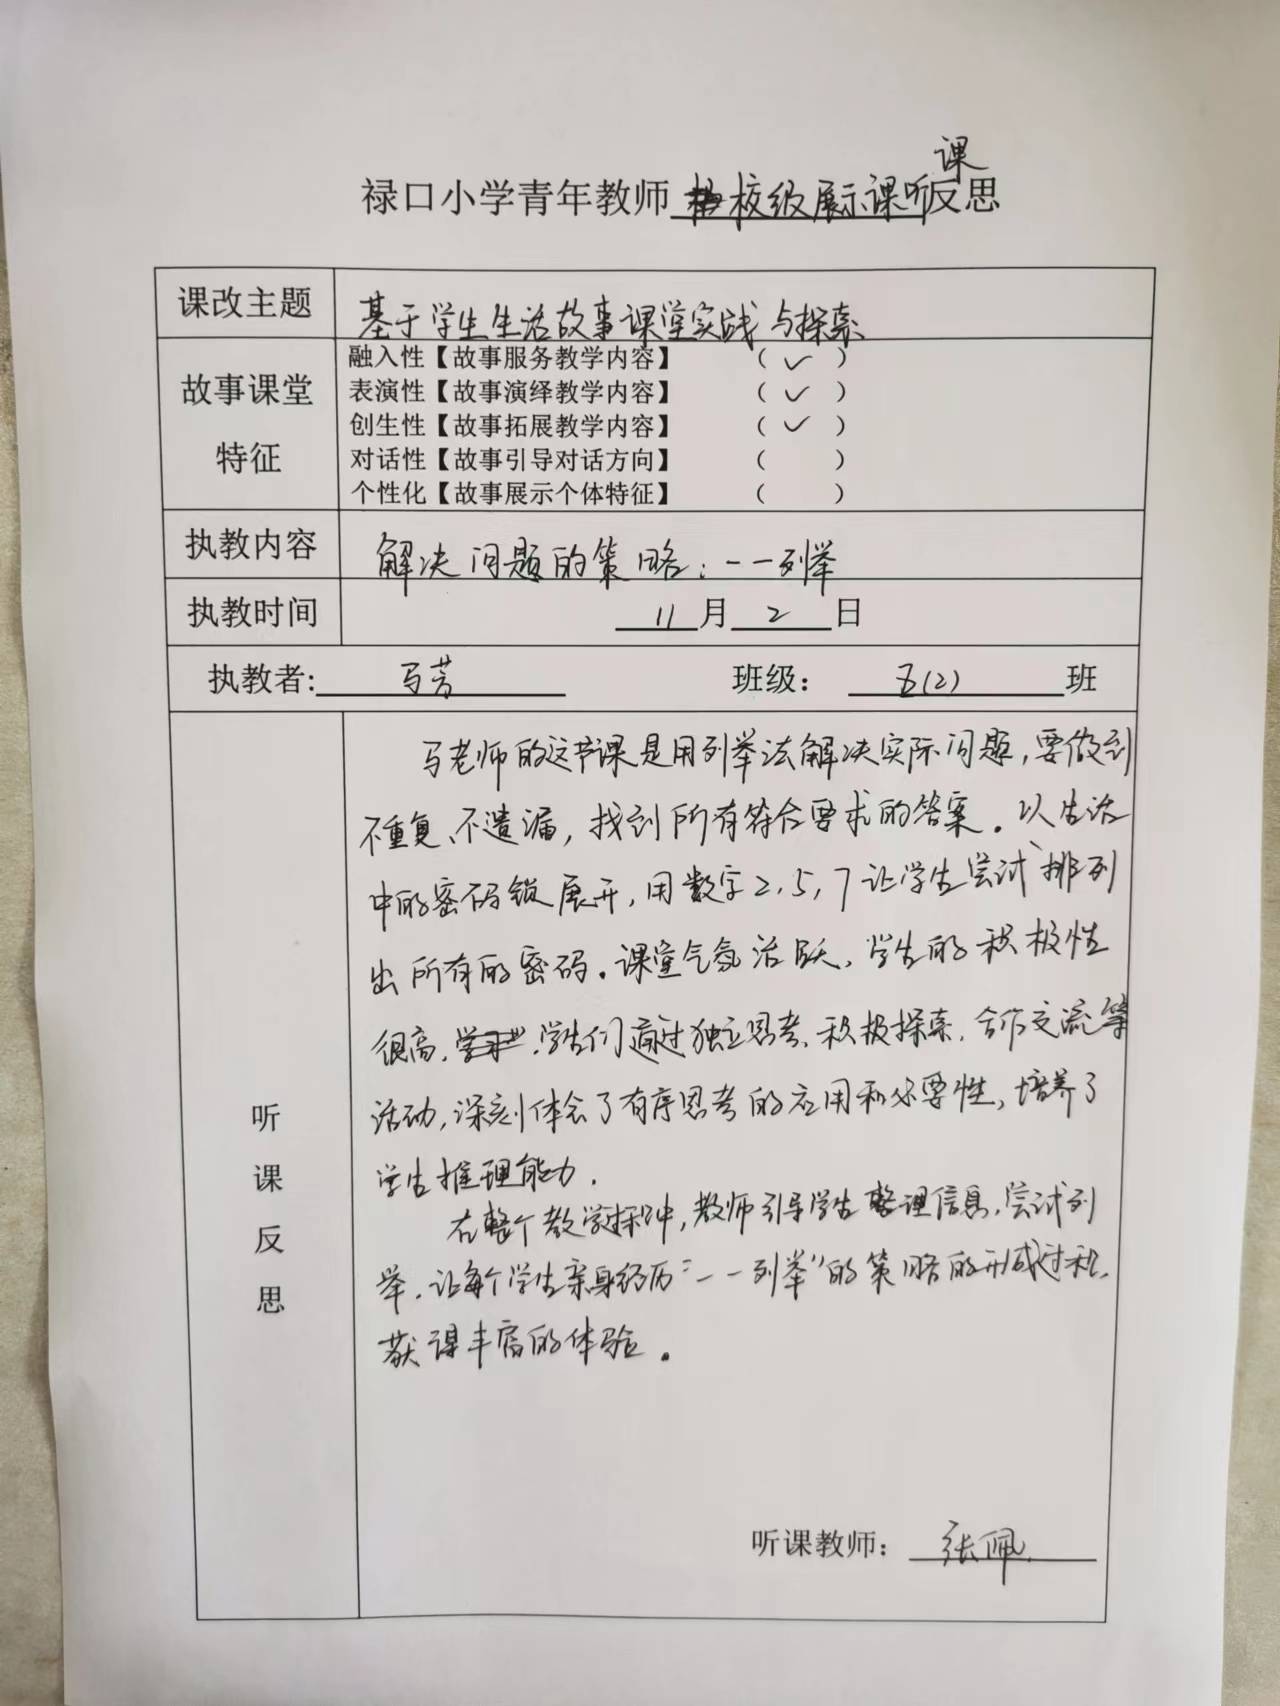 禄口小学青年教师校级展示课听课反思
课改主题 基于学生生活故事课堂实践与探索
故事课堂特征
融入性【故事服务教学内容】 （ ✓ ）
表演性【故事演绎教学内容】 （ ✓ ）
创生性【故事拓展教学内容】 （ ✓ ）
对话性【故事引导对话方向】 （ ）
个性化【故事展示个体特征】 （ ）
执教内容 解决问题的策略：一一列举
执教时间 11月2日
执教者: 马芳 班级： 五(2) 班
听课反思
马老师的这节课是用列举法解决实际问题，要做到
不重复、不遗漏，找到所有符合要求的答案。以生活
中的密码锁展开，用数字2，5，7让学生尝试排列
出所有的密码。课堂气氛活跃，学生的积极性
很高，学生们通过独立思考、积极探索，合作交流等
活动，深刻体会了有序思考的应用和必要性，培养了
学生推理能力．
在整个教学中，教师引导学生整理信息，尝试列
举，让每个学生亲身经历“一一列举”的策略的形成过程，
获得丰富的体验。
听课教师： 张佩